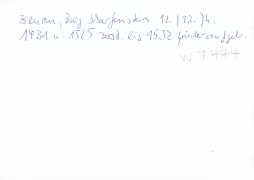 Beuren, Burg Scharfenstein 12. (13.) Jh.
1431 u. 1525 zerst. bis 1532 wiederaufgeb.
W 7444